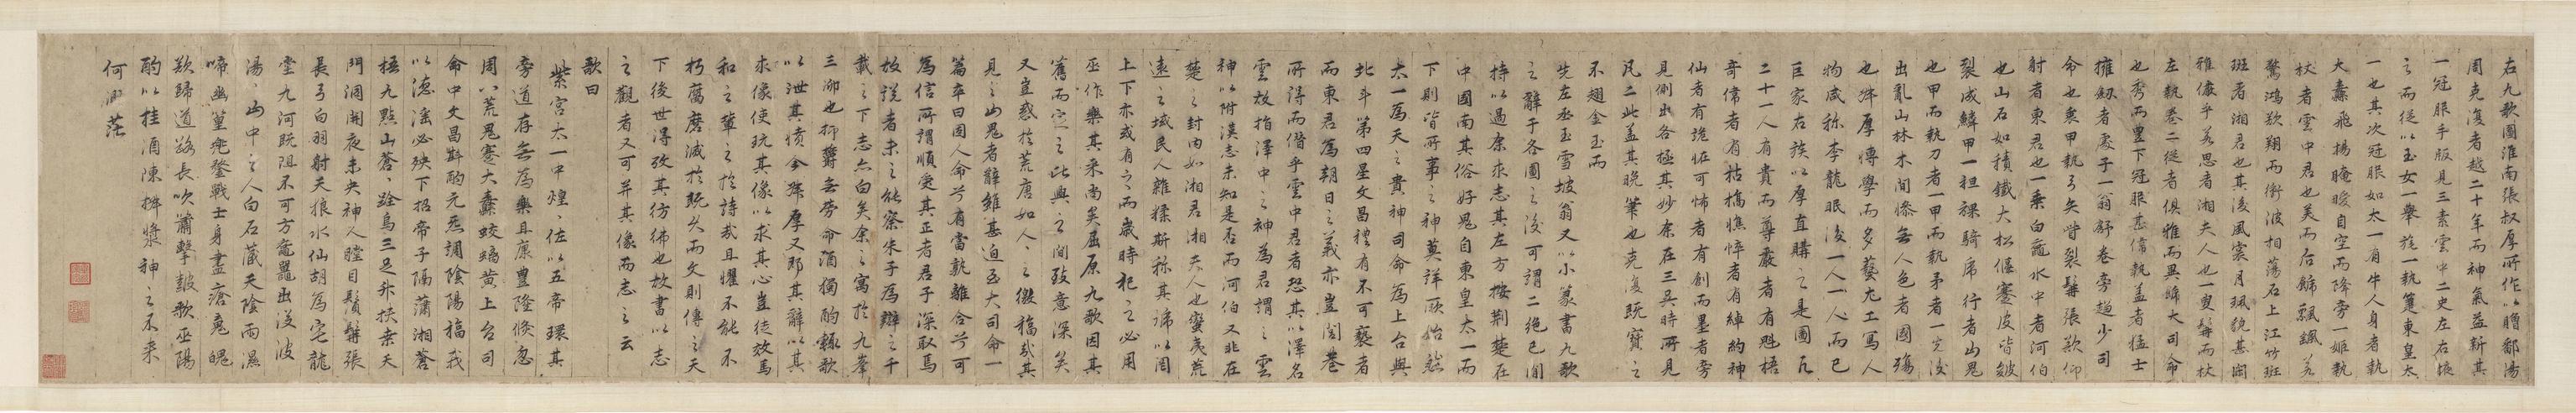 右九歌圖淮南張叔厚所作以贈鄱湯
周克復者越二十年而神氣益新其
一冠服手版見三素雲中二史左右掖
之而從以玉女一舉旌一執籥東皇太
一也其次冠服如太一有牛人身者執
大纛飛揚晻曖自空而降旁一姬執
杖者雲中君也美而后飾飄飄若
驚鴻欻翔而衝波相蕩石上江竹斑
斑者湘君也其後風裳月珮貌甚閑
雅儼乎若思者湘夫人也一叟髯而杖
左執卷二從者俱雅而異飾大司命
也秀而豐下冠服甚偉執蓋者猛士
擁劒者處子一翁舒卷旁趨少司
命也裹甲執弓矢眥裂髯張欻仰
射者東君也一乘白黿水中者河伯
也山石如積鐵大松偃蹇皮皆皴
裂成鱗甲一袒裸騎虎行者山鬼
也甲而執刀者一甲而執矛者一先後
出亂山林木間慘無人色者國殤
也叔厚博學而多藝尤工寫人
物咸稱李龍眠後一人一人而已
巨家右族以厚直購之是圖凡
二十一人有貴而尊嚴者有魁梧
奇偉者有枯槁憔悴者有綽約神
仙者有詭怪可怖者有創而墨者旁
見側出各極其妙余在三吳時所見
凡二此蓋其晚筆也克復既寶之
不翅金玉而
先左丞玉雪坡翁又以小篆書九歌
之辭于各圖之後可謂二絕已間
持以過余求志其左方按荆楚在
中國南其俗好鬼自東皇太一而
下則皆所事之神莫詳厥始然
太一為天之貴神司命為上台與
北斗第四星文昌禮有不可褻者
而東君為朝日之義亦豈閭巷
所得而僭乎雲中君者恐其以澤名
雲故指澤中之神為君謂之雲
神以附漢志未知是否而河伯又非在
楚之封內如湘君湘夫人也蠻夷荒
遠之域民人雜糅斯稱其諦以周
上下亦或有之而歲時祀之必用
巫作樂其來尚矣屈原九歌因其
舊而定之比興之間致意深矣
又豈惑於荒唐如人人之徼福於其
見之山鬼者辭雖甚迫至大司命一
篇卒曰固人命兮有當孰離合兮可
為信所謂順受其正者君子深取焉
故説者未之能察朱子為辯之千
載之下志亦白矣余之寓於九峯
三泖也抑鬱無勞命酒獨酌輒歌
以泄其憤今叔厚又即其辭以其
求像使玩其像以求其心豈徒效馬
和之輩之於詩哉且懼不能不
朽蠹磨滅於既久而文則傳之天
下後世得攷其彷彿也故書以志
之觀者又可并其像而志之云
歌曰
紫宮太一中煌煌佐以五帝環其
旁道存無為樂且康豐隆倏忽
周八荒鬼蹇大纛蛟螭黄上台司
命中文昌斟酌元炁調陰陽福我
以德淫必殃下招帝子隔蒲湘蒼
梧九點山蒼蒼踆烏三足升扶桒天
門洞開夜未央神人瞠目鬚髯張
長弓白羽射天狼水仙胡為宅龍
堂九河既阻不可方黿鼉出没波
湯湯山中之人白石藏天陰雨濕
啼幽篁疵瞀戰士身盡瘡鬼魄
欻歸道路長吹簫擊鼓歌巫陽
酌以桂酒陳椒漿神之不来
何渺茫